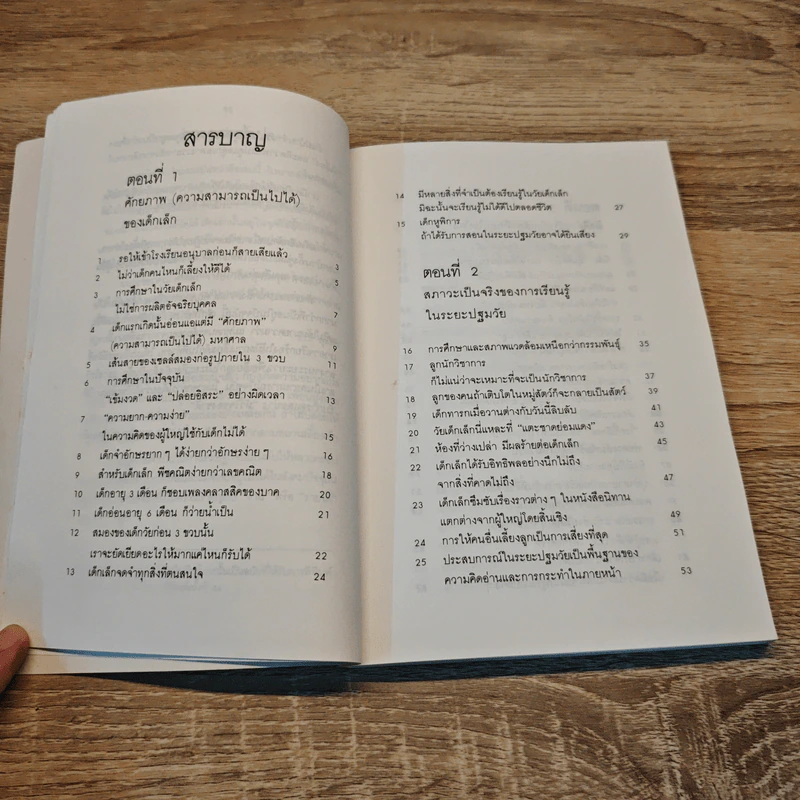 สารบาญ
ตอนที่ 1
ศักยภาพ (ความสามารถเป็นไปได้)
ของเด็กเล็ก
1 รอให้เข้าโรงเรียนอนุบาลก่อนก็สายเสียแล้ว 3
2 ไม่ว่าเด็กคนไหนก็เลี้ยงให้ดีได้ 5
3 การศึกษาในวัยเด็กเล็ก
ไม่ใช่การผลิตอัจฉริยบุคคล 7
4 เด็กแรกเกิดนั้นอ่อนแอแต่มี “ศักยภาพ”
(ความสามารถเป็นไปได้) มหาศาล 9
5 เส้นสายของเซลล์สมองก่อรูปภายใน 3 ขวบ 11
6 การศึกษาในปัจจุบัน
“เข้มงวด” และ “ปล่อยอิสระ” อย่างผิดเวลา 13
7 “ความยาก-ความง่าย”
ในความคิดของผู้ใหญ่ใช้กับเด็กไม่ได้ 15
8 เด็กจำอักษรยาก ๆ ได้ง่ายกว่าอักษรง่าย ๆ 16
9 สำหรับเด็กเล็ก พีชคณิตง่ายกว่าเลขคณิต 18
10 เด็กอายุ 3 เดือน ก็ชอบเพลงคลาสสิคของบาค 20
11 เด็กอ่อนอายุ 6 เดือน ก็ว่ายน้ำเป็น 21
12 สมองของเด็กวัยก่อน 3 ขวบนั้น
เราจะยัดเยียดอะไรให้มากแค่ไหนก็รับได้ 22
13 เด็กเล็กจดจำทุกสิ่งที่ตนสนใจ 24
14 มีหลายสิ่งที่จำเป็นต้องเรียนรู้ในวัยเด็กเล็ก
มิฉะนั้นจะเรียนรู้ไม่ได้ดีไปตลอดชีวิต 27
15 เด็กหูพิการ
ถ้าได้รับการสอนในระยะปฐมวัยอาจได้ยินเสียง 29
ตอนที่ 2
สภาวะเป็นจริงของการเรียนรู้
ในระยะปฐมวัย
16 การศึกษาและสภาพแวดล้อมเหนือกว่ากรรมพันธุ์ 35
17 ลูกนักวิชาการ
ก็ไม่แน่ว่าจะเหมาะที่จะเป็นนักวิชาการ 37
18 ลูกของคนถ้าเติบโตในหมู่สัตว์ก็จะกลายเป็นสัตว์ 39
19 เด็กทารกเมื่อวานต่างกับวันนี้ลิบลับ 41
20 วัยเด็กเล็กนี่แหละที่ “แตะชาดย่อมแดง” 43
21 ห้องที่ว่างเปล่า มีผลร้ายต่อเด็กเล็ก 45
22 เด็กเล็กได้รับอิทธิพลอย่างนึกไม่ถึง
จากสิ่งที่คาดไม่ถึง 47
23 เด็กเล็กซึมซับเรื่องราวต่าง ๆ ในหนังสือนิทาน
แตกต่างจากผู้ใหญ่โดยสิ้นเชิง 49
24 การให้คนอื่นเลี้ยงลูกเป็นการเสี่ยงที่สุด 51
25 ประสบการณ์ในระยะปฐมวัยเป็นพื้นฐานของ
ความคิดอ่านและการกระทำในภายหน้า 53